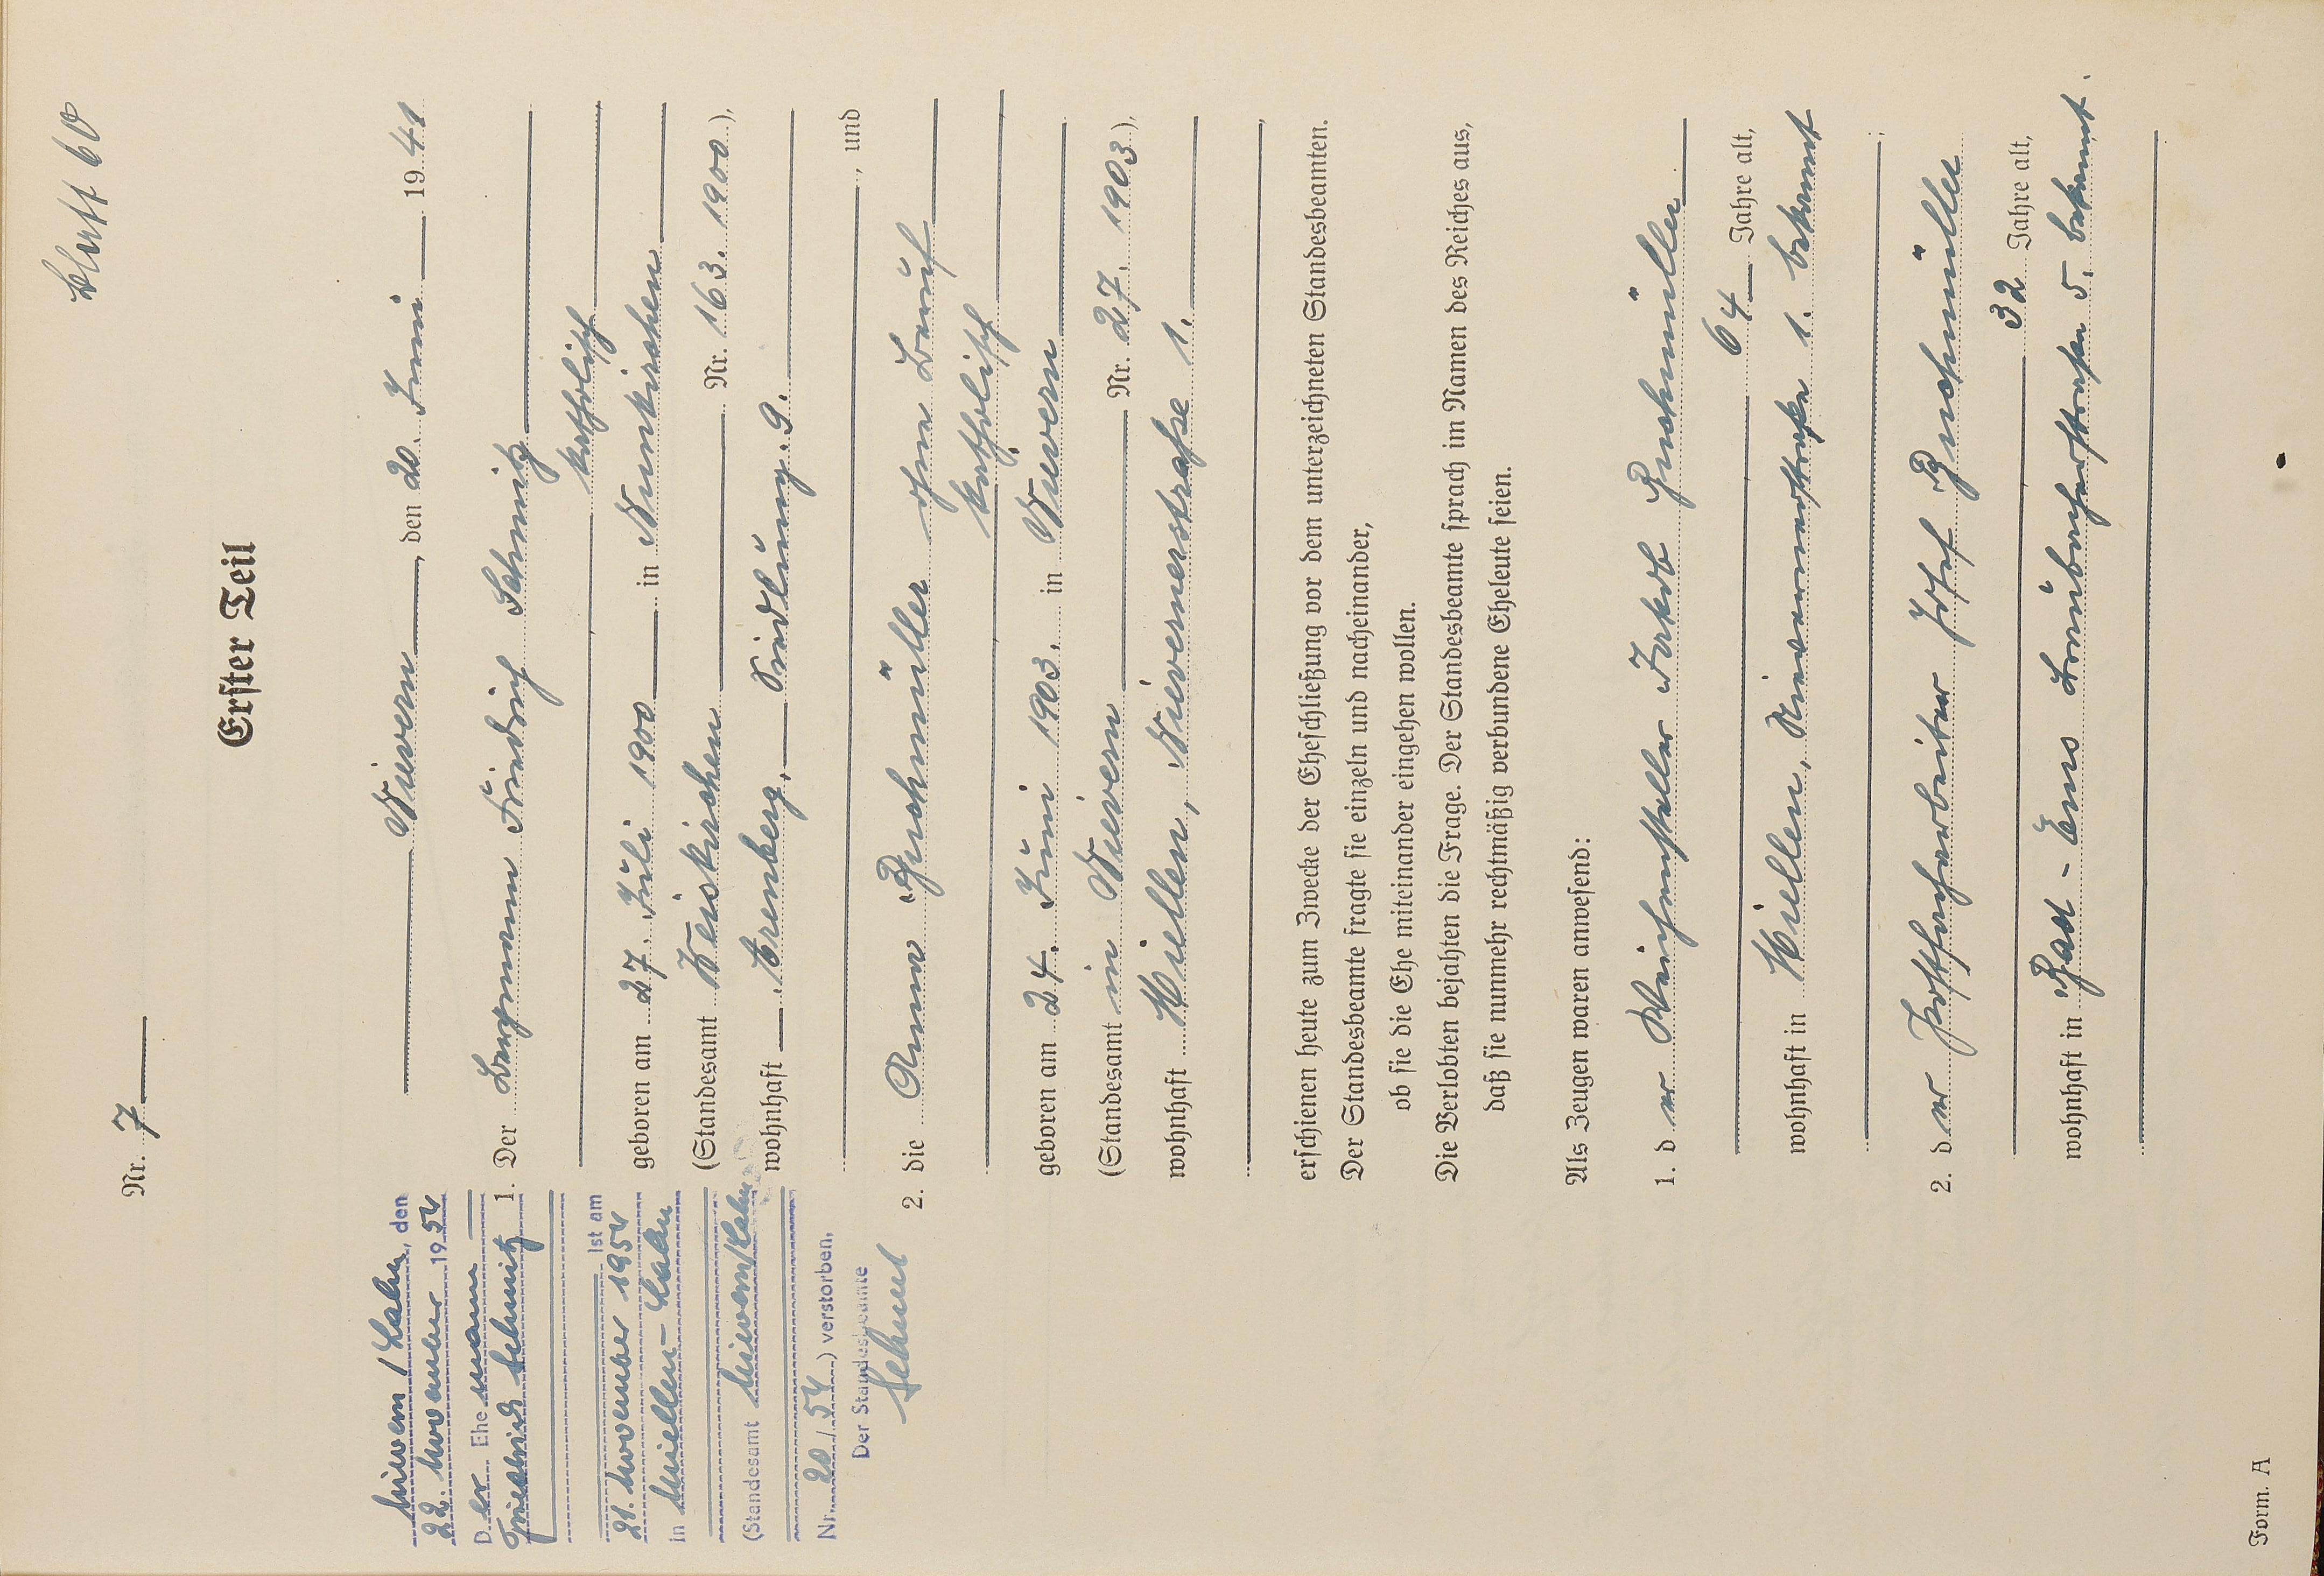 Blatt 60
Nr. 7
Erster Teil
Nievern, den 20. Juni 1941
1. Der Bergmann Friedrich Schmitz
katholisch
geboren am 27. Juli 1900 in Neunkirchen
(Standesamt Neunkirchen Nr. 163. 1900),
wohnhaft Arenberg, Siedlung 9.
, und
2. die Anna Buchmüller ohne Beruf
katholisch
geboren am 24. Juni 1903. in Nievern
(Standesamt in Nievern Nr. 27. 1903),
wohnhaft Miellen, Nievernerstraße 1.
erschienen heute zum Zwecke der Eheschließung vor dem unterzeichneten Standesbeamten.
Der Standesbeamte fragte sie einzeln und nacheinander,
ob sie die Ehe miteinander eingehen wollen.
Die Verlobten bejahten die Frage. Der Standesbeamte sprach im Namen des Reiches aus,
daß sie nunmehr rechtmäßig verbundene Eheleute seien.
Als Zeugen waren anwesend:
1. der Weichensteller Jakob Buchmüller
, 64 Jahre alt,
wohnhaft in Miellen, Nievernerstraße 1. bekannt
;
2. der Postfacharbeiter Josef Buchmüller
, 32 Jahre alt,
wohnhaft in Bad-Ems Braubacherstraße 5. bekannt.
Form. A
Nievern/Lahn, den
22. November 1954
Der Ehemann
Friedrich Schmitz
ist am
21. November 1954
in Miellen-Lahn
(Standesamt Nievern/Lahn
Nr. 20/54) verstorben.
Der Standesbeamte